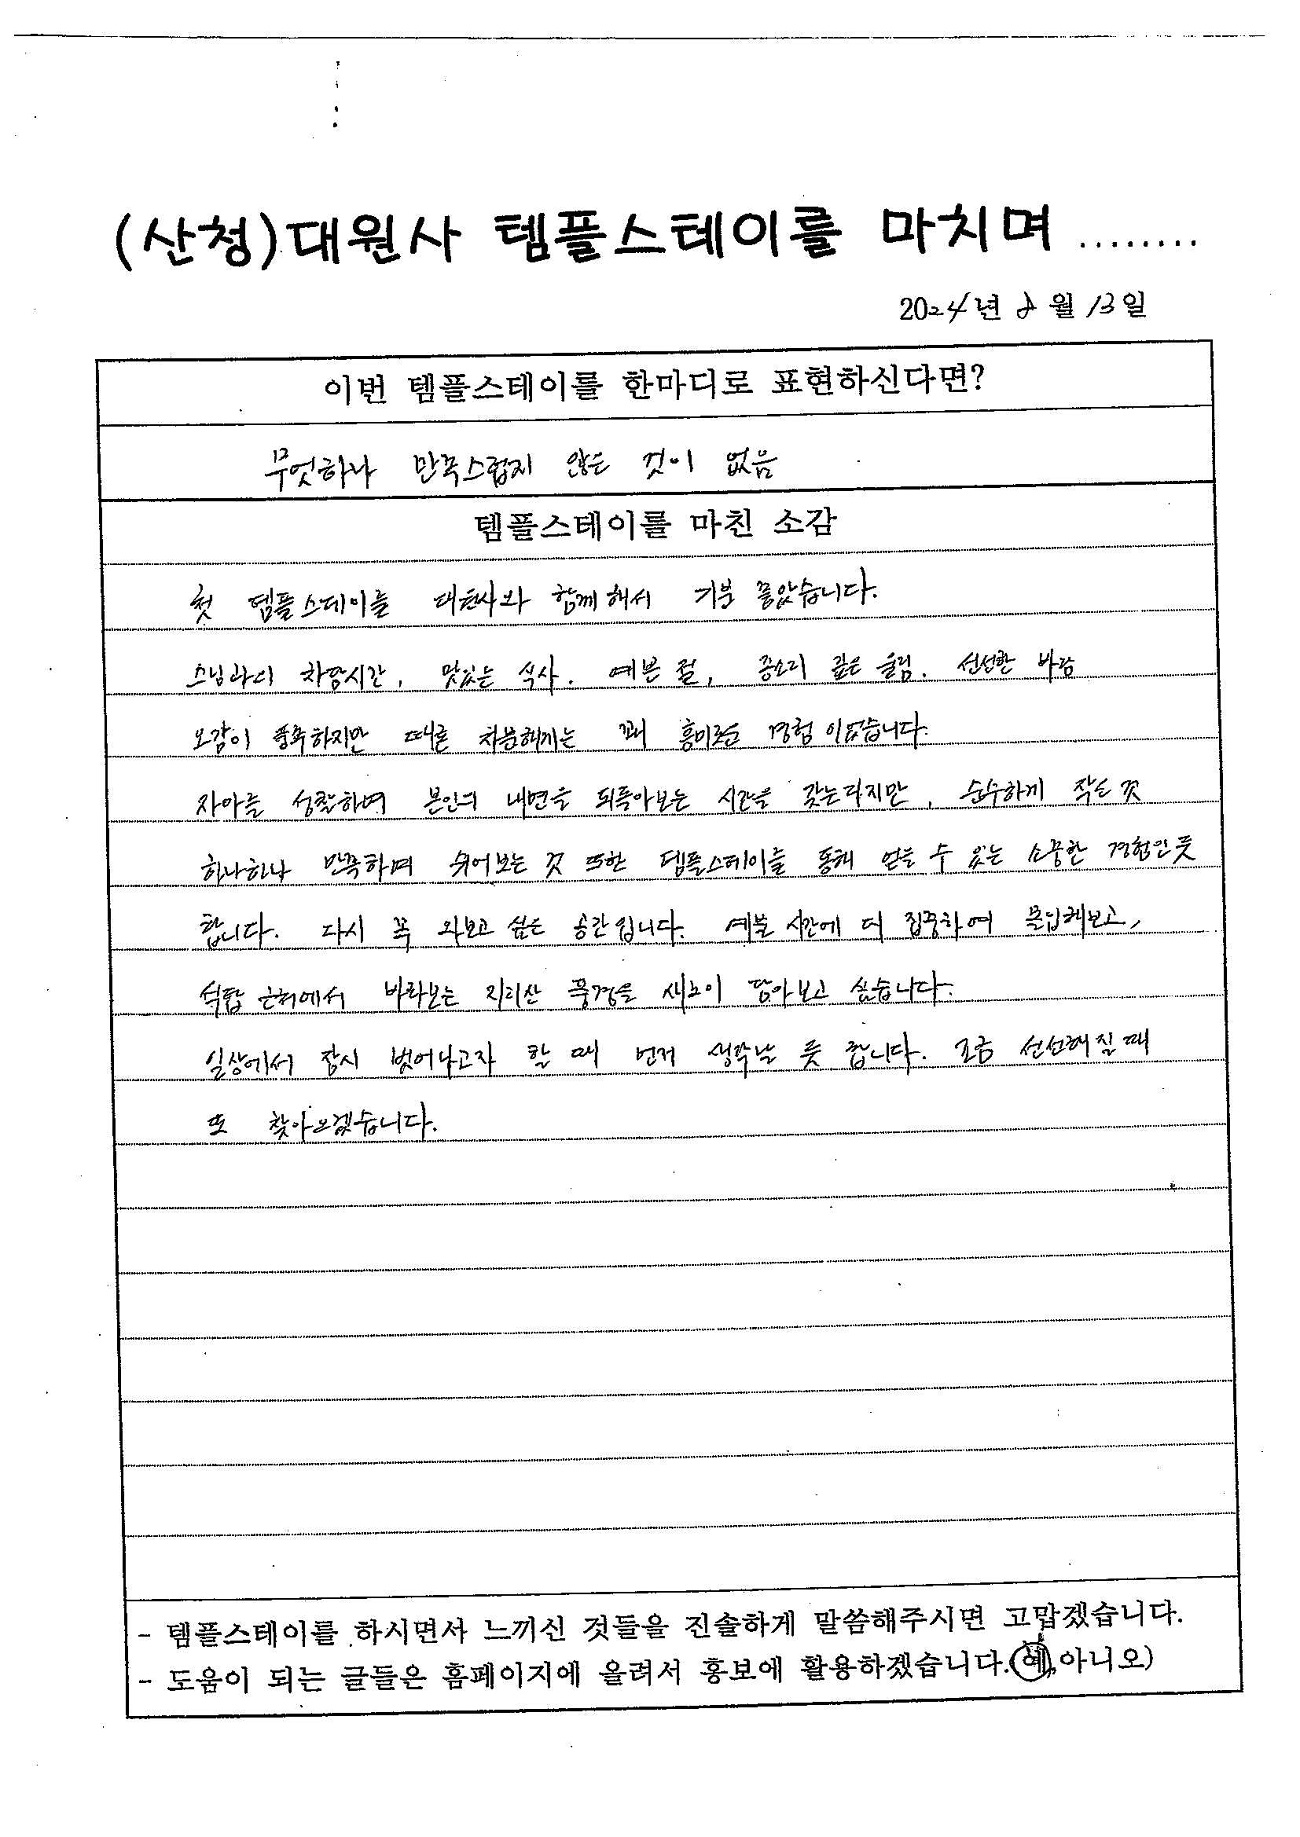 (산청)대원사 템플스테이를 마치며 ........
2024년 8월 13일
이번 템플스테이를 한마디로 표현하신다면?
무엇하나 만족스럽지 않은 것이 없음
템플스테이를 마친 소감
첫 템플스테이를 대원사와 함께해서 기분 좋았습니다.
스님과의 차담시간, 맛있는 식사. 예쁜 절, 종소리 깊은 울림. 선선한 바람
오감이 풍족하지만 때론 차분해지는 꽤 흥미로운 경험이었습니다.
자아를 성찰하며 본인의 내면을 되돌아보는 시간을 갖는다지만, 순수하게 작은 것
하나하나 만족하며 쉬어보는 것 또한 템플스테이를 통해 얻을 수 있는 소중한 경험인듯
합니다. 다시 꼭 와보고 싶은 공간입니다. 예불 시간에 더 집중하여 몰입해보고,
식당 근처에서 바라보는 지리산 풍경을 새로이 담아보고 싶습니다.
일상에서 잠시 벗어나고자 할 때 먼저 생각날 듯 합니다. 조금 선선해질 때
또 찾아오겠습니다.
- 템플스테이를 하시면서 느끼신 것들을 진솔하게 말씀해주시면 고맙겠습니다.
- 도움이 되는 글들은 홈페이지에 올려서 홍보에 활용하겠습니다.(예,아니오)